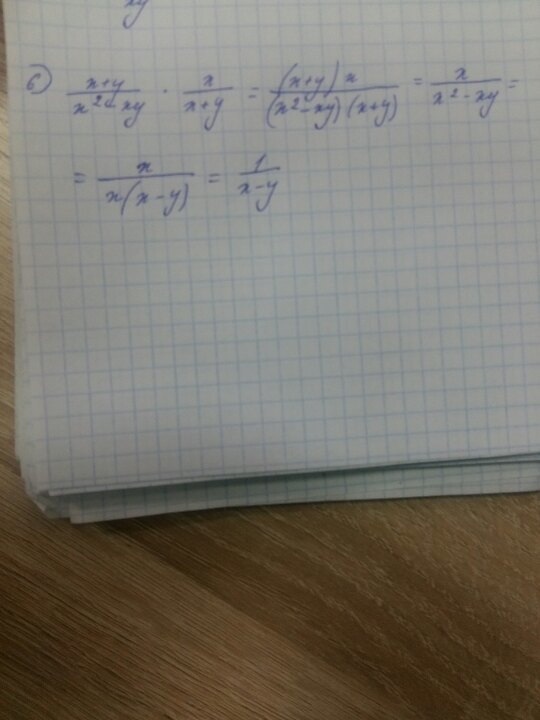 xy
б) \frac{x+y}{x^2-xy} · \frac{x}{x+y} = \frac{(x+y)x}{(x^2-xy)(x+y)} = \frac{x}{x^2-xy} =
= \frac{x}{x(x-y)} = \frac{1}{x-y}